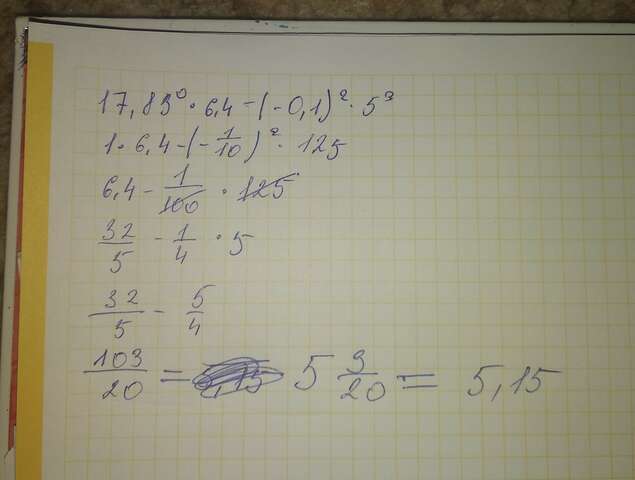 17,83⁰ · 6,4 - (-0,1)² · 5³
1 · 6,4 - (-1/10)² · 125
6,4 - 1/100 · 125
32/5 - 1/4 · 5
32/5 - 5/4
103/20 = 5 3/20 = 5,15